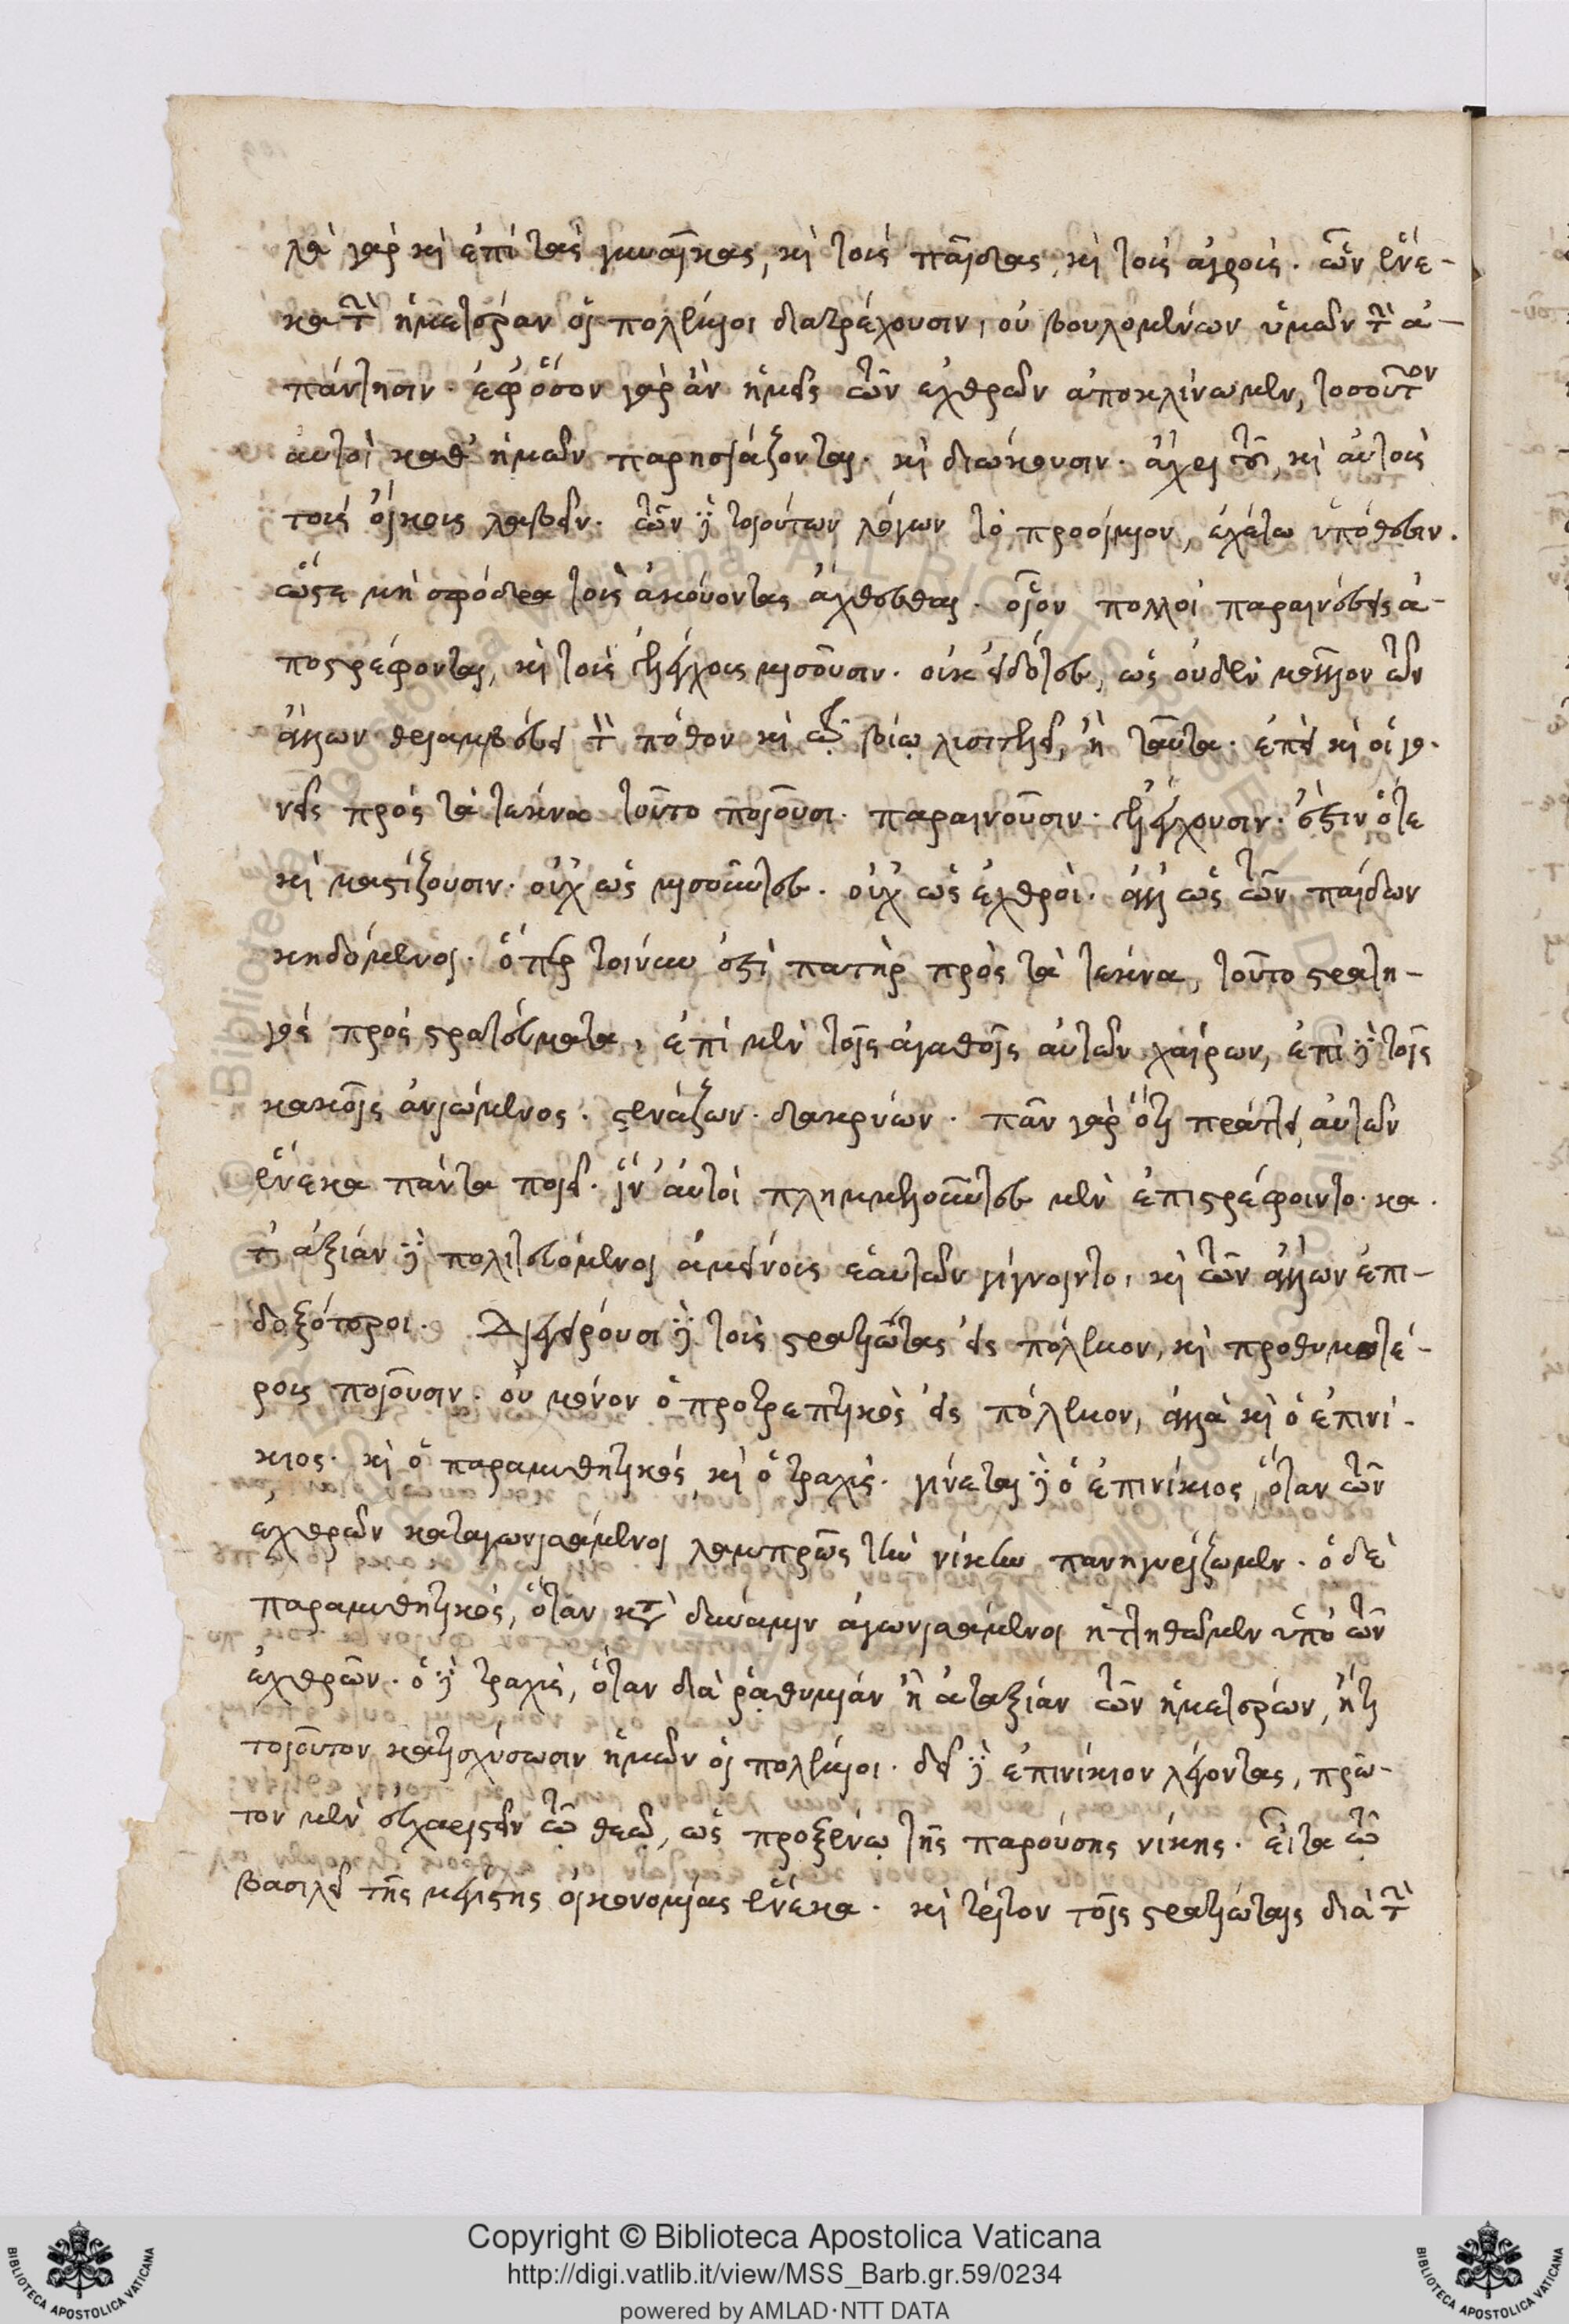 λὰ γὰρ καὶ ἐπὶ τὰς γυναῖκας, καὶ τοὺς παῖδας, καὶ τοὺς ἀγρούς. ὧν ἕνε-
κα τὴν ἡμετέραν οἱ πολέμιοι διατρέχουσιν, οὐ βουλομένων ὑμῶν τὴν ἀ-
πάντησιν. ἐφ' ὅσον γὰρ ἂν ἡμεῖς τῶν ἐχθρῶν ἀποκλίνωμεν, τοσοῦτον
αὐτοὶ καθ' ἡμῶν παρησιάζονται. καὶ διώκουσιν. ἄχρι τοῦ, καὶ αὐτοὺς
τοὺς οἴκους λαβεῖν. τῶν δὲ τοιούτων λόγων τὸ προοίμιον, ἐχέτω ὑπόθεσιν.
ὥστε μὴ σφόδρα τοὺς ἀκούοντας ἄχθεσθαι. οἷον πολλοὶ παραινέσεις ἀ-
ποστρέφονται, καὶ τοὺς ἐλέγχους μισοῦσιν. οὐκ εἰδότες, ὡς οὐδὲν κάλλιον τῶν
ἄλλων θριαμβεύει τὸν πόθον καὶ τῷ βίῳ λυσιτελεῖ, ἢ ταῦτα. ἐπεὶ καὶ οἱ γο-
νεῖς πρὸς τὰ τέκνα τοῦτο ποιοῦσι. παραινοῦσιν. ἐλέγχουσιν. ἔστιν ὅτε
καὶ μαστίζουσιν. οὐχ ὡς μισοῦντες. οὐχ ὡς ἐχθροί. ἀλλ' ὡς τῶν παίδων
κηδόμενοι. ὅπερ τοίνυν ἐστὶ πατὴρ πρὸς τὰ τέκνα, τοῦτο στρατη-
γὸς πρὸς στρατεύματα, ἐπὶ μὲν τοῖς ἀγαθοῖς αὐτῶν χαίρων, ἐπὶ δὲ τοῖς
κακοῖς ἀνιώμενος. στενάζων. δακρύων. πᾶν γὰρ ὅτι πράττει, αὐτῶν
ἕνεκα πάντα ποιεῖ. ἵν' αὐτοὶ πλημμελοῦντες μὲν ἐπιστρέφοιντο. κα-
τ' ἀξίαν δὲ πολιτευόμενοι ἀμείνους ἑαυτῶν γίγνοιντο, καὶ τῶν ἄλλων ἐπι-
δοξότεροι. Διεγείρουσι δὲ τοὺς στρατιώτας εἰς πόλεμον, καὶ προθυμοτέ-
ρους ποιοῦσιν. οὐ μόνον ὁ προτρεπτικὸς εἰς πόλεμον, ἀλλὰ καὶ ὁ ἐπινί-
κιος. καὶ ὁ παραμυθητικός, καὶ ὁ τραχύς. γίνεται δὲ ὁ ἐπινίκιος, ὅταν τῶν
ἐχθρῶν καταγωνισάμενοι λαμπρῶς τὴν νίκην πανηγυρίζωμεν. ὁ δὲ
παραμυθητικός, ὅταν κατὰ δύναμιν ἀγωνισάμενοι ἡττηθῶμεν ὑπὸ τῶν
ἐχθρῶν. ὁ δὲ τραχύς, ὅταν διὰ ῥᾳθυμίαν ἢ ἀταξίαν τῶν ἡμετέρων, ἤ τι
τοιοῦτον κατισχύσωσιν ἡμῶν οἱ πολέμιοι. δεῖ δὲ ἐπινίκιον λέγοντας, πρῶ-
τον μὲν εὐχαριστεῖν τῷ θεῷ, ὡς προξένῳ τῆς παρούσης νίκης. εἶτα τῷ
βασιλεῖ τῆς μεγίστης οἰκονομίας ἕνεκα. καὶ τρίτον τοῖς στρατιώταις διὰ τὴν
© Biblioteca Apostolica Vaticana ALL RIGHTS RESERVED
Copyright © Biblioteca Apostolica Vaticana
http://digi.vatlib.it/view/MSS_Barb.gr.59/0234
powered by AMLAD·NTT DATA
BIBLIOTECA APOSTOLICA VATICANA
BIBLIOTECA APOSTOLICA VATICANA